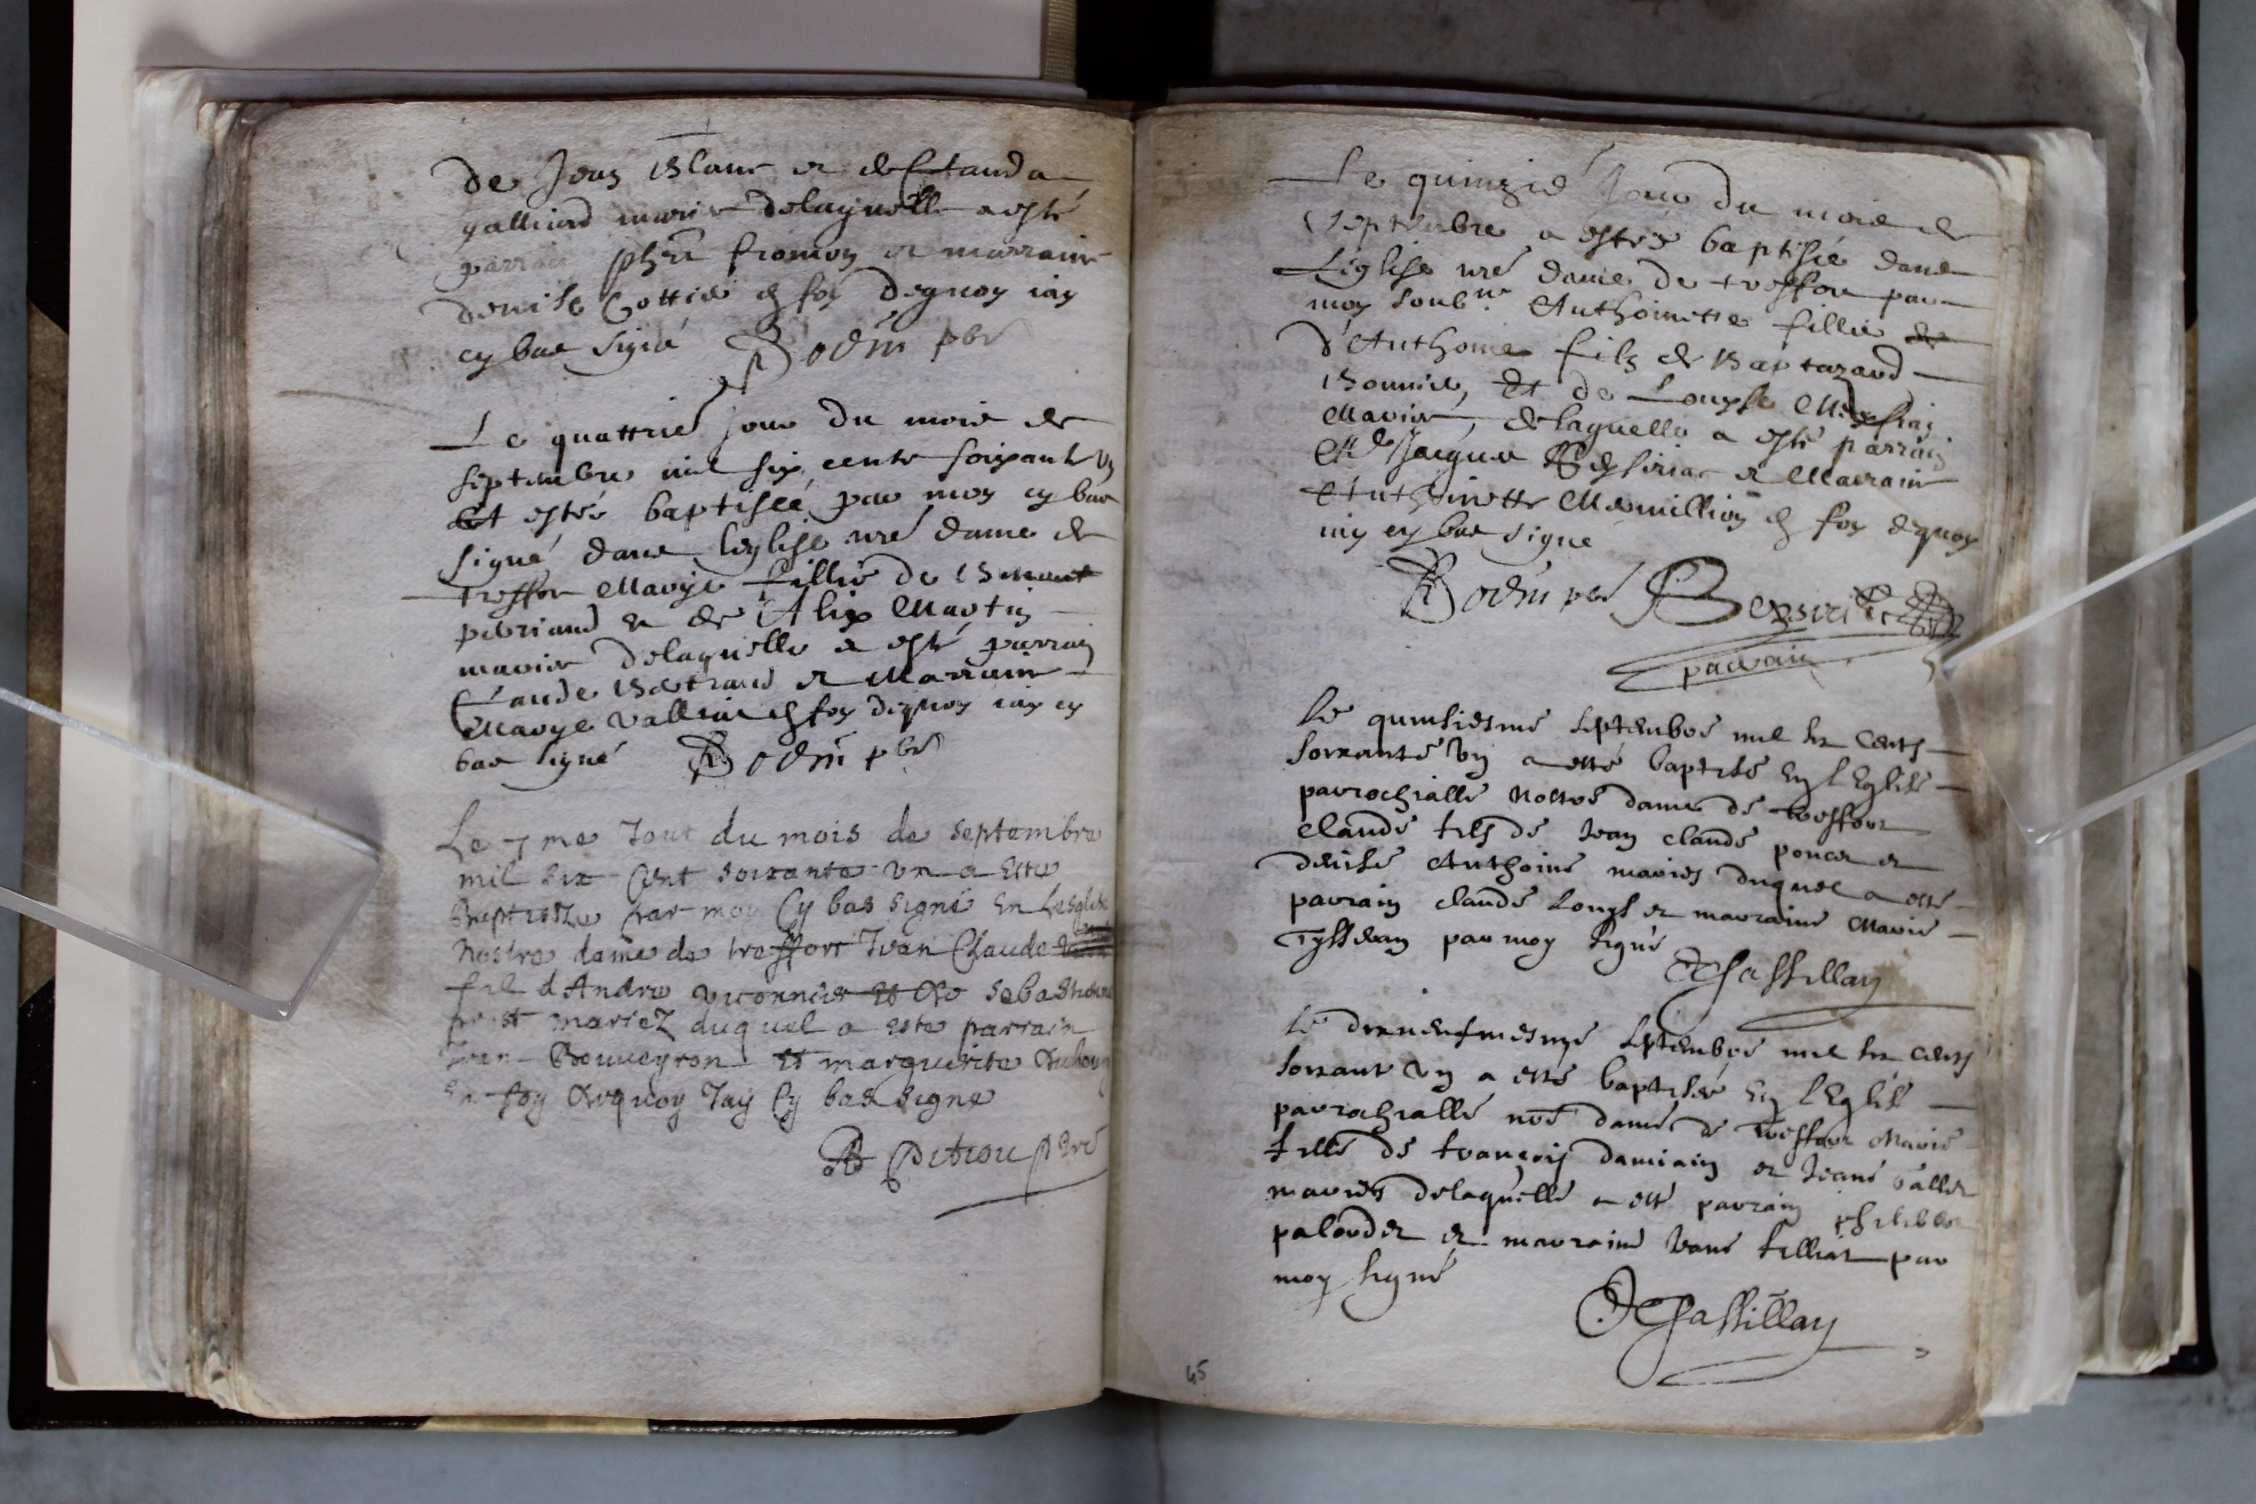 de Jean Blanc et de Clauda
galliard mariés delaquelle a esté
parrain phert fromon et marraine
denise Cottié en foy dequoy iay
cy bas signé Bodin pbr
Le quattrie jour du mois de
septembre mil six cents soixante un
at estée baptiseé par moy cy bas
signé dans leglise nre dame de
treffor Marye fillie de Benoict
perriand et de Alix Martin
mariés delaquelle a esté parrain
Claude Bertrand et Marraine
Marye vallin en foy dequoy iay cy
bas signé Bodin pbr
Le 7me Jour du mois de septembre
mil six Cent soixante un a este
Baptisze par moy Cy bas signé En Lesglise
nostre dame de treffort Jean Claude
fil d'Andre viconnier Et de sebastiene
mariez duquel a este parrain
Jean Bouveyron Et marguerite
En foy dequoy Jay Cy bas signe
pbre
Le quinzié Jour du mois de
septembre a estée baptisée dans
Léglise nré dame de treffort par
moy soubné Anthoinette fillie de
d'Anthoine fils de Baltazard
Bonnie, Et de Louyse
Mariés, delaquelle a esté parrain
Me Jacque et Marraine
Anthoinette en foy dequoy
iay cy bas signe
Bodin pbr
parrain
Le quinsiesme septembre mil six cents
soixante un a esté baptisé en l'Eglise
parrochialle nostre dame de treffort
claude fils de Jean claude poncet et
denise Anthoine mariés duquel a esté
parrain claude Longs et marraine Marie
Tysseran par moy signé
Dchassillan
Le dixneufviesme septembre mil six cents
soixante un a esté baptisée en l'Eglise
parrochialle nre dame de Treffort Marie
fille de françois damiain et Jeane vallet
mariés delaquelle a esté parrain philibbert
palordet et marraine Jeane filliat par
moy signé
Dchassillan
45